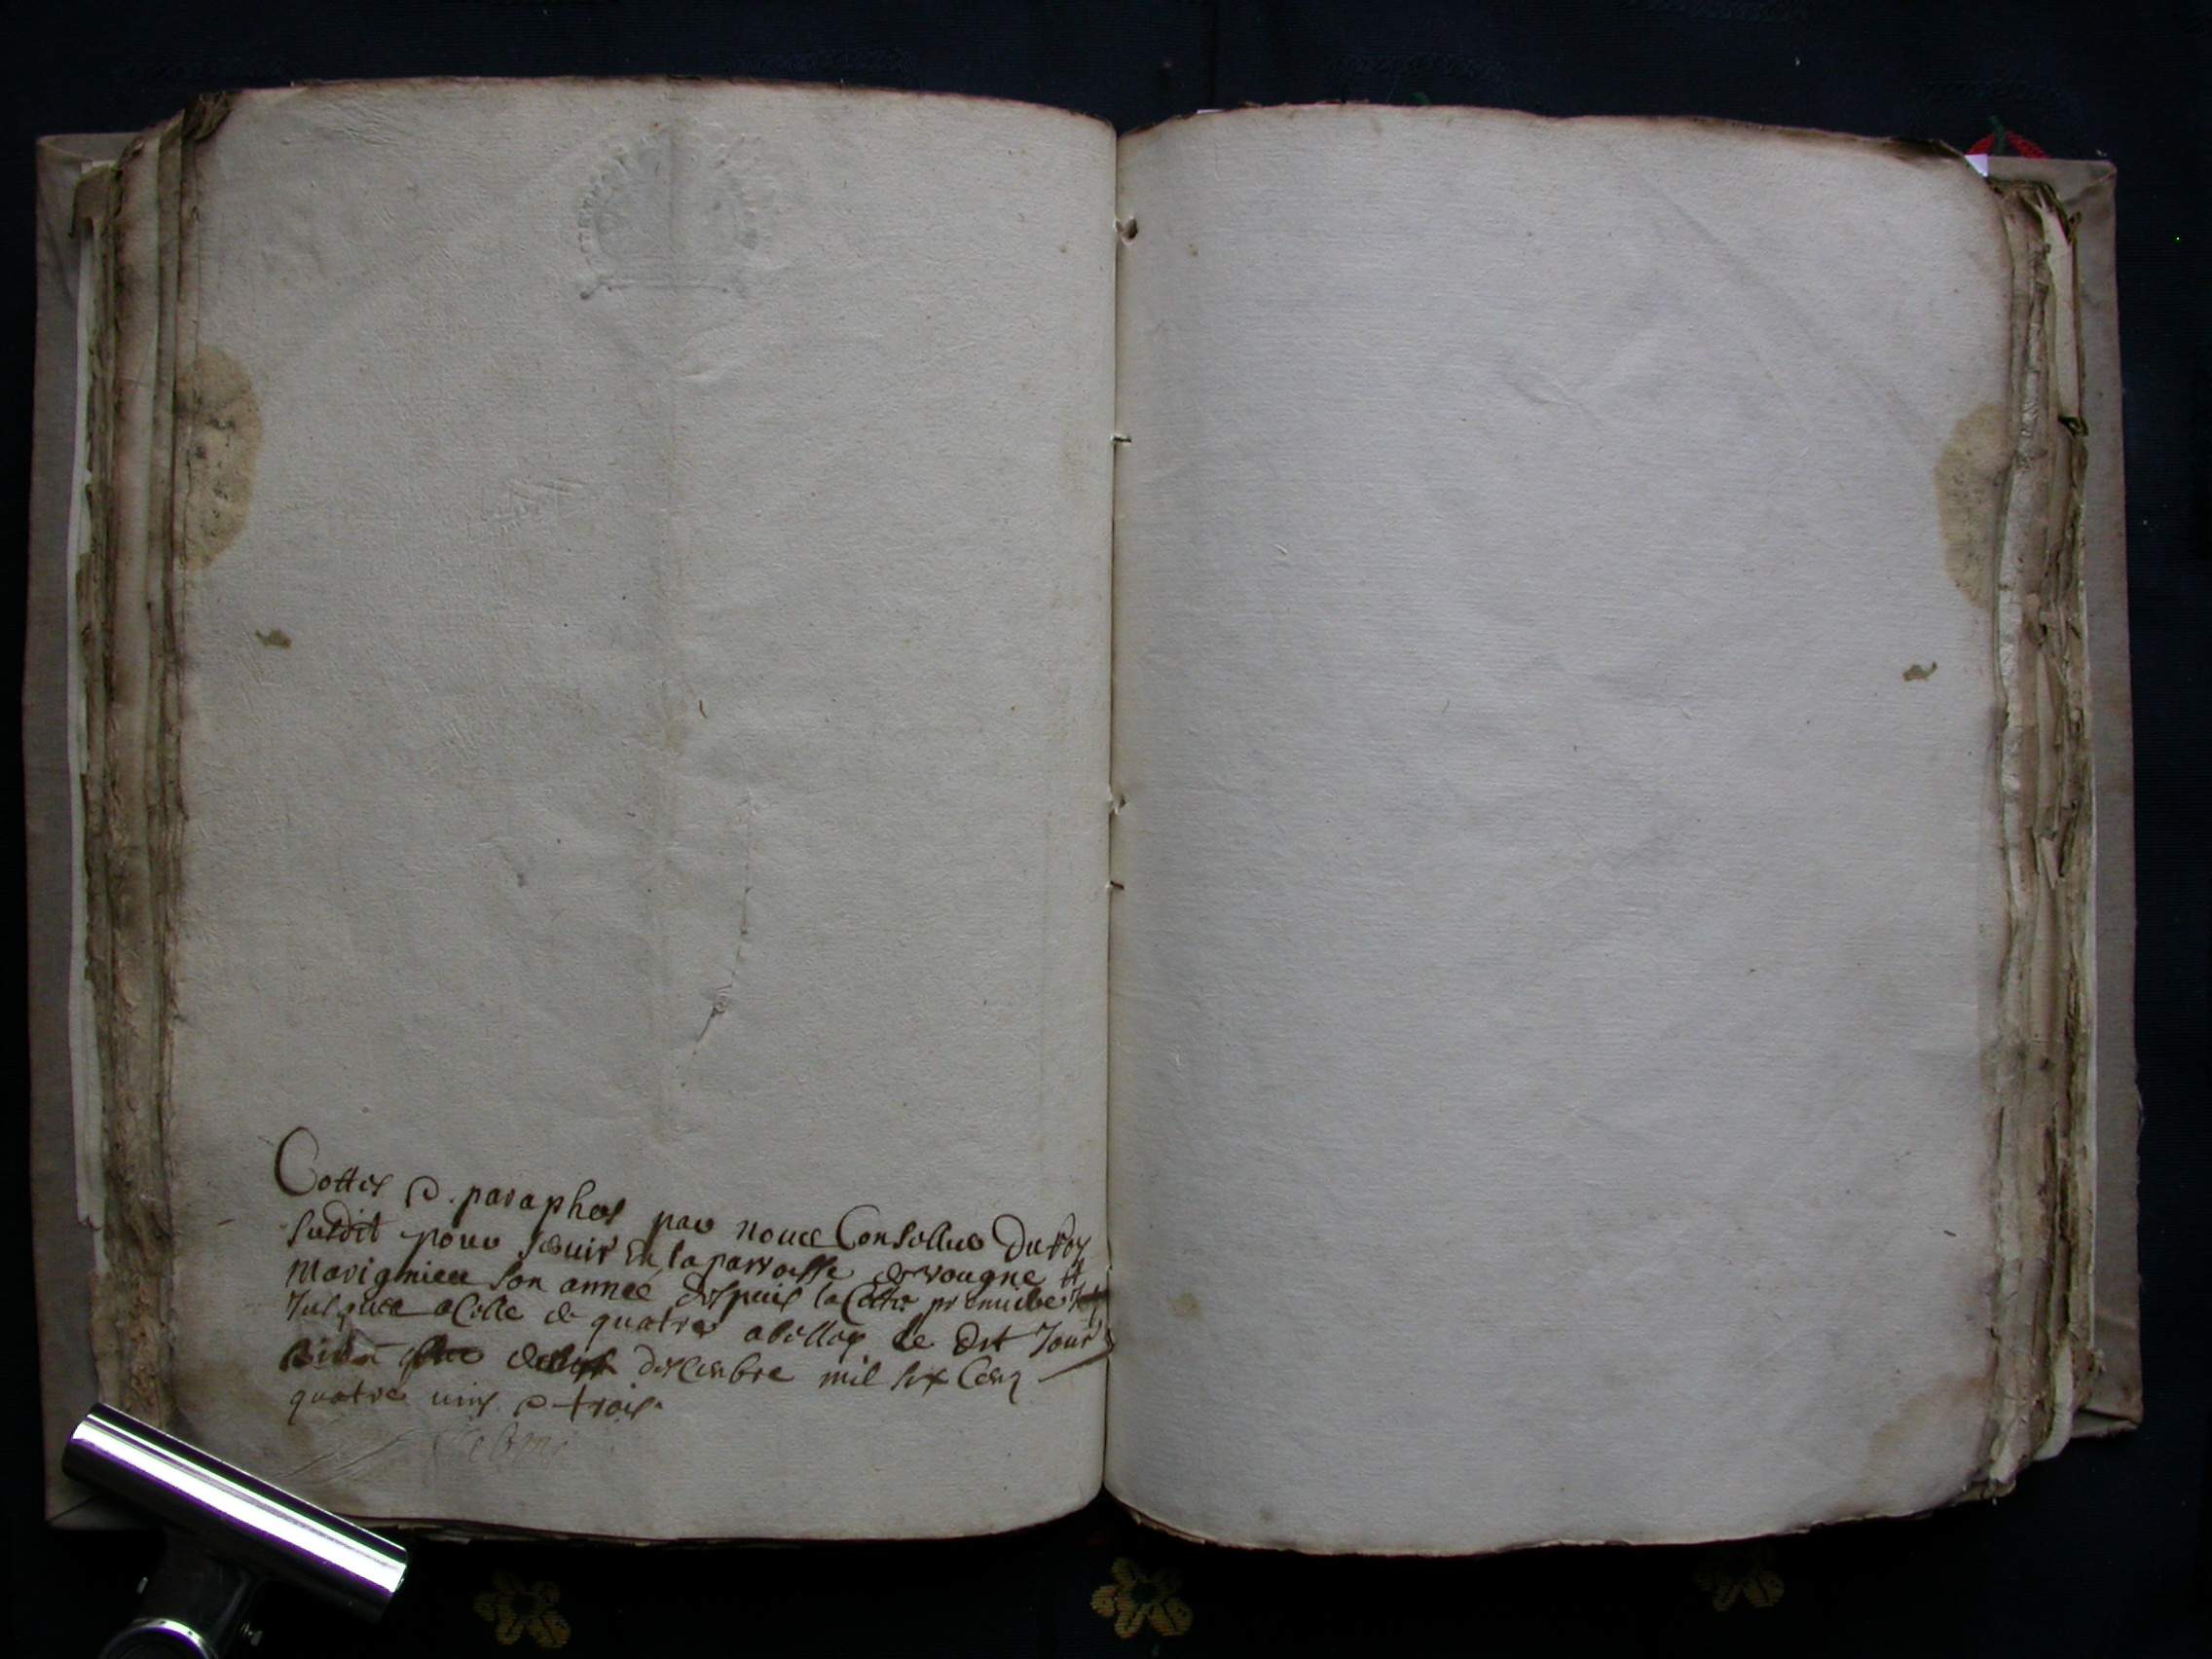 Cottes & paraphes par nous Conseller du Roy
susdit pour servir En la parroisse de vougne et
marignieu son année despuis la Cotte premiere
Jusques a Celle de quatre abillog le dit Jour
descembre mil six Cens
quatre vins & trois.